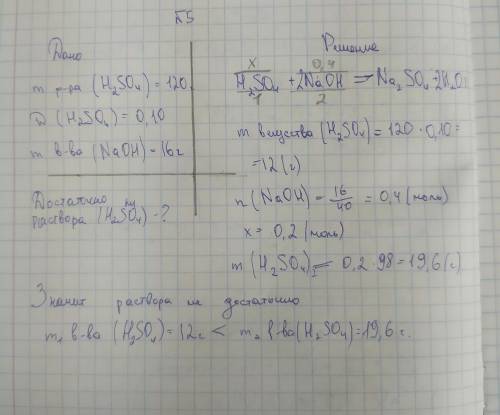 Дано
m р-ра (H₂SO₄) = 120
(H₂SO₄) = 0,10
m в-ва (NaOH) - 16 г
Достаточно ли
раствора (H₂SO₄) - ?
Решение
x 0,4
H₂SO₄ + 2NaOH = Na₂SO₄ + 2H₂O
1 2
m вещества (H₂SO₄) = 120 · 0,10 =
= 12 (г)
n (NaOH) = 16/40 = 0,4 (моль)
x = 0,2 (моль)
m (H₂SO₄) = 0,2 · 98 = 19,6 (г)
Значит раствора не достаточно
m₁ в-ва (H₂SO₄) = 12 г < m₂ в-ва (H₂SO₄) = 19,6 г.